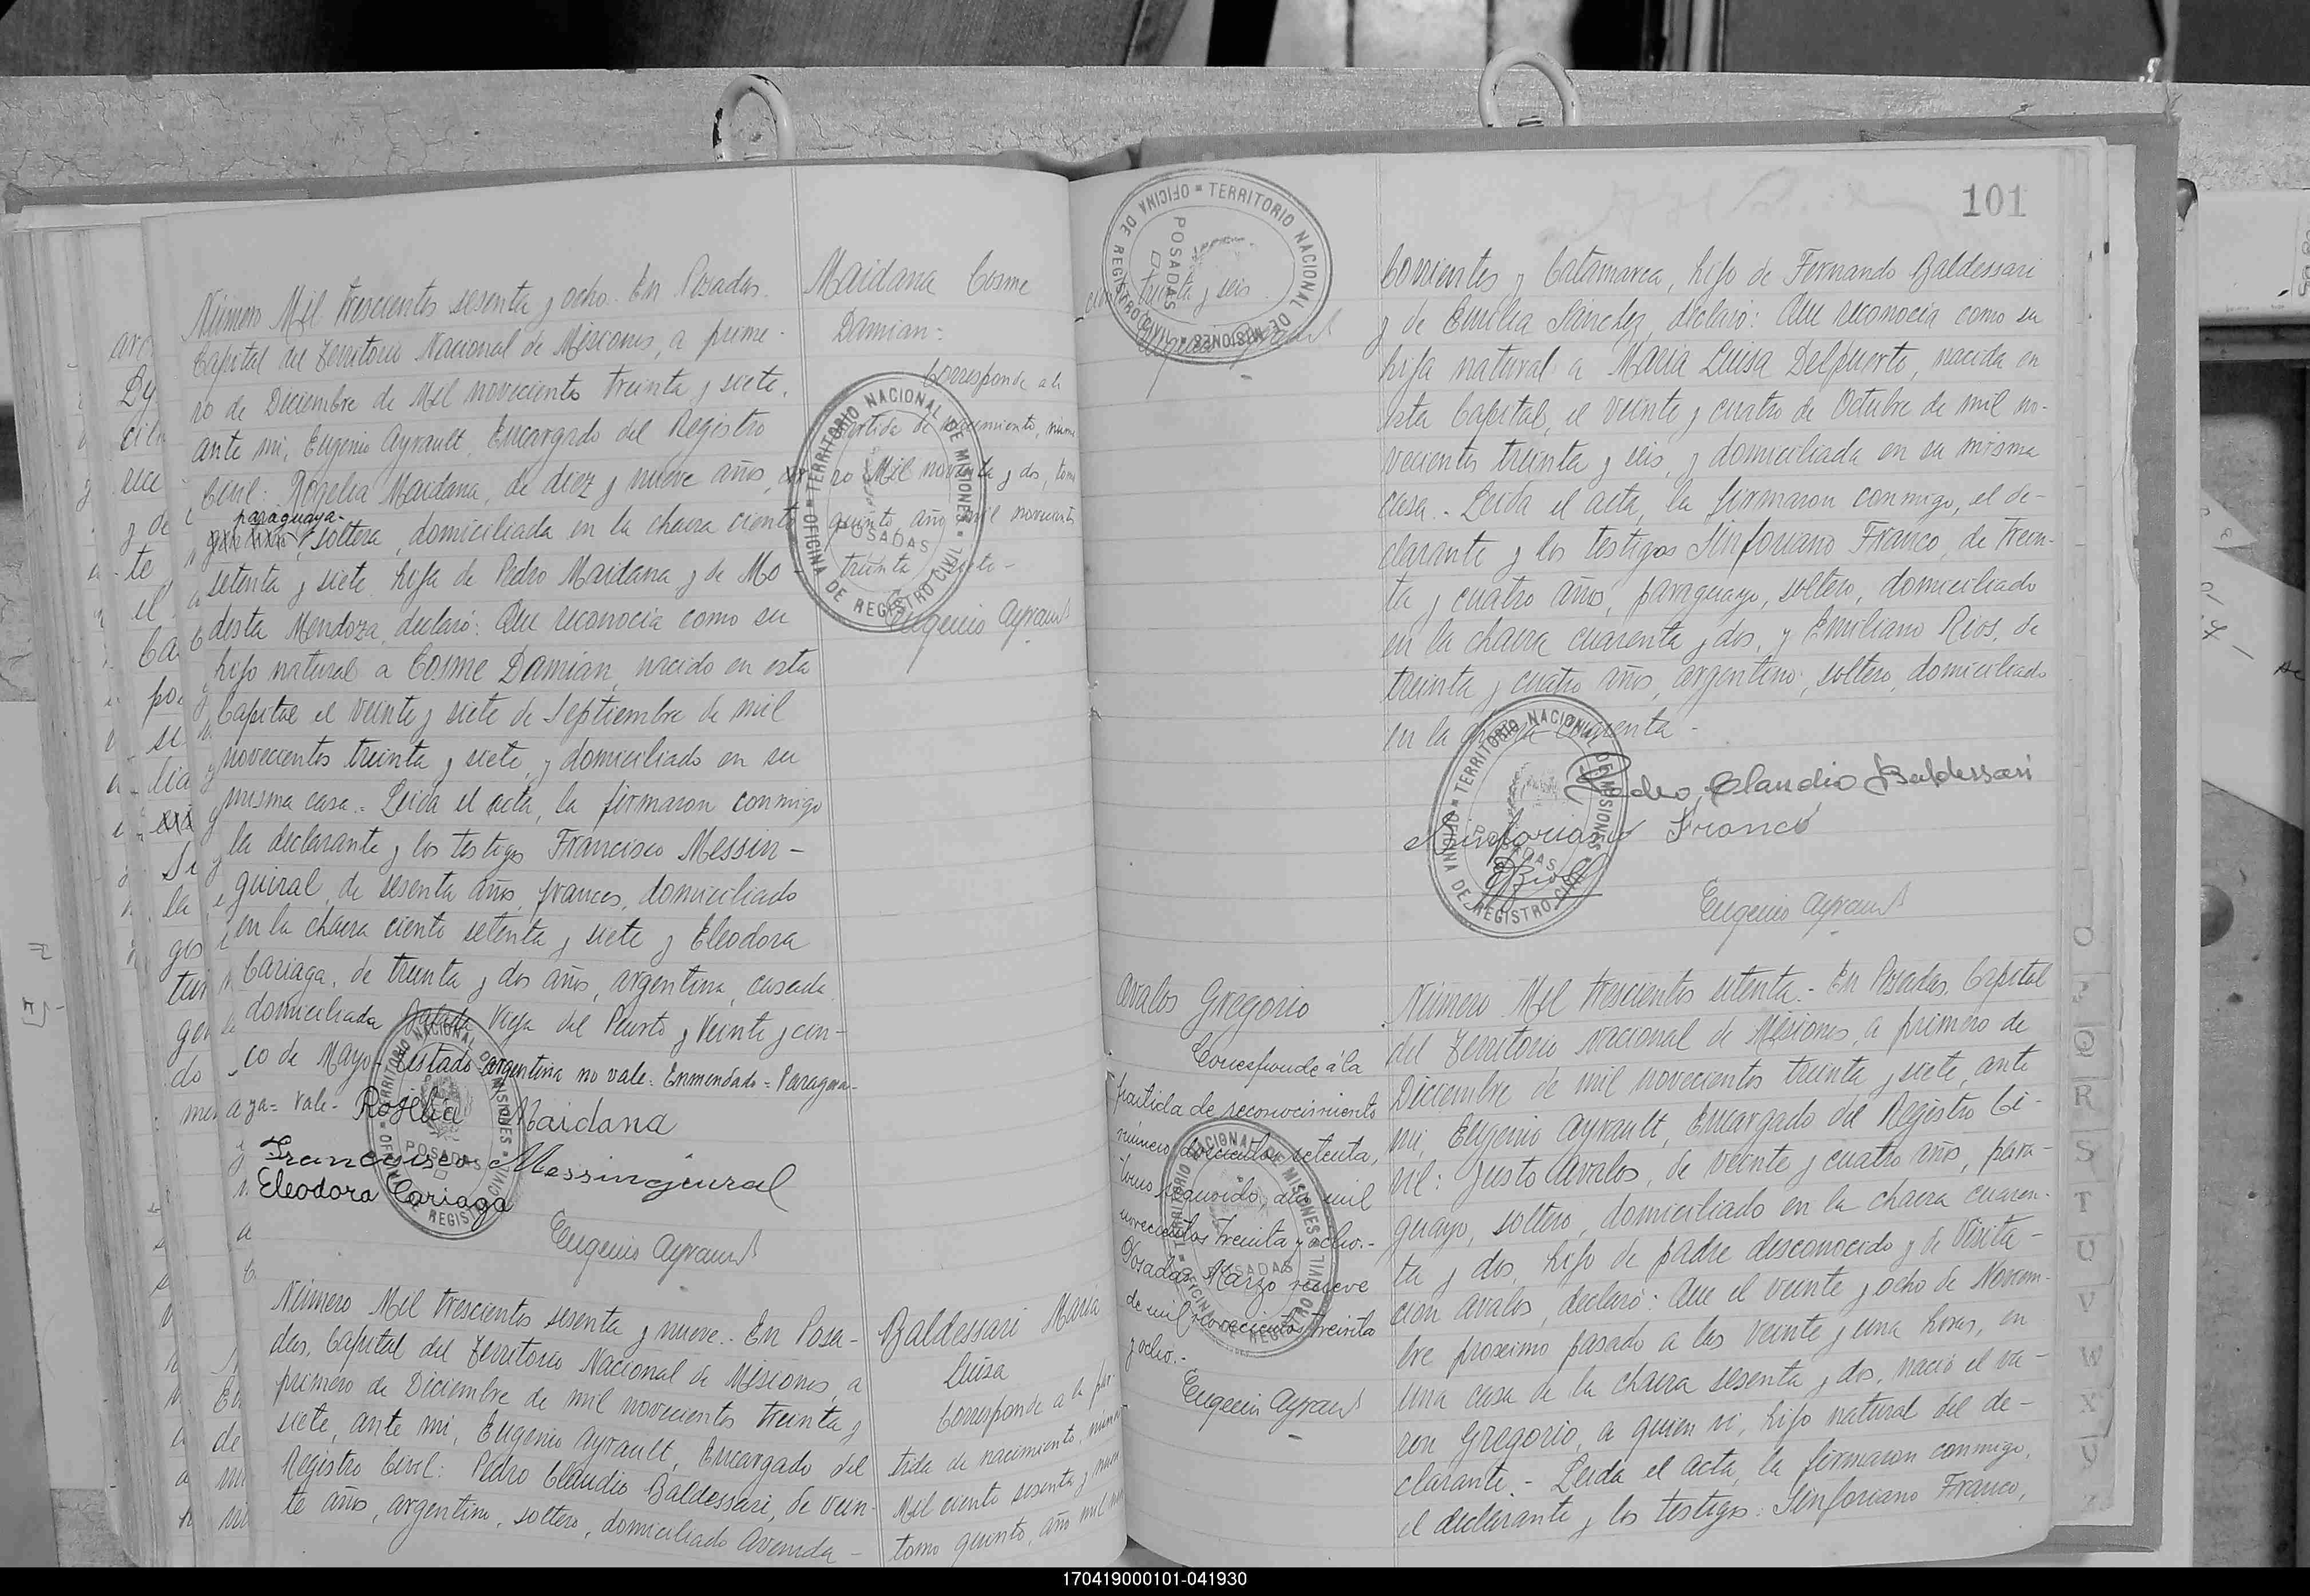 Número Mil trescientos sesenta y ocho. En Posadas
Capital del Territorio Nacional de Misiones, a prime-
ro de Diciembre de Mil novecientos treinta y siete,
ante mi, Eugenio Ayrault, Encargado del Registro
Civil: Rogelia Maidana, de diez y nueve años,
paraguaya-
soltera, domiciliada en la chacra ciento
setenta y siete, hija de Pedro Maidana y de Mo
desta Mendoza, declaró: Que reconocia como su
hijo natural a Cosme Damian, nacido en esta
Capital el veinte y siete de Septiembre de mil
novecientos treinta y siete, y domiciliado en su
misma casa.- Leida el acta, la firmaron conmigo
la declarante y los testigos Francisco Messin-
guiral, de sesenta años, frances, domiciliado
en la chacra ciento setenta y siete y Eleodora
Cariaga, de treinta y dos años, argentina, casada
domiciliada Bajada Vieja del Puerto y Veinte y cin-
co de Mayo- Testado argentina no vale. Enmendado= Paragua-
aya= Vale-
Rogelia Maidana
Francisco Messinguiral
Eleodora Cariaga
Eugenio Ayrault
Maidana Cosme
Damian=
Corresponde a la
partida de nacimiento, núme
ro Mil noventa y dos, tomo
quinto, año mil novecientos
treinta y siete-
Eugenio Ayrault
TERRITORIO NACIONAL DE MISIONES
POSADAS
OFICINA DE REGISTRO CIVIL
Número Mil trescientos sesenta y nueve.- En Posa-
das, Capital del Territorio Nacional de Misiones, a
primero de Diciembre de mil novecientos treinta y
siete, ante mi, Eugenio Ayrault, Encargado del
Registro Civil: Pedro Claudio Baldessari, de vein-
te años, argentino, soltero, domiciliado Avenida-
Baldessari Maria
Luisa
Corresponde a la par-
tida de nacimiento, núme
Mil ciento sesenta y nueve
tomo quinto, año mil no
101
OFICINA DE REGISTRO CIVIL
TERRITORIO NACIONAL DE MISIONES
POSADAS
treinta y seis
Corrientes y Catamarca, hijo de Fernando Baldessari
y de Emilia Sánchez, declaró: Que reconocia como su
hija natural a Maria Luisa Delpuerto, nacida en
esta Capital, el veinte y cuatro de Octubre de mil no-
vecientos treinta y seis, y domiciliada en su misma
casa.- Leida el acta, la firmaron conmigo, el de-
clarante y los testigos Sinforiano Franco, de trein-
ta y cuatro años, paraguayo, soltero, domiciliado
en la chacra cuarenta y dos, y Emiliano Rios, de
treinta y cuatro años, argentino, soltero, domiciliado
en la chacra cuarenta-
Pedro Claudio Baldessari
Sinforiano Franco
ERios
Eugenio Ayrault
Avalos Gregorio
Corresponde á la
partida de reconocimiento
número doscientos setenta,
tomo segundo, año mil
novecientos treinta y ocho.-
Posadas, Marzo nueve
de mil novecientos treinta
y ocho.-
Eugenio Ayrault
Número Mil trescientos setenta.- En Posadas, Capital
del Territorio Nacional de Misiones, a primero de
Diciembre de mil novecientos treinta y siete, ante
mi, Eugenio Ayrault, Encargado del Registro Ci-
vil: Justo Avalos, de veinte y cuatro años, para-
guayo, soltero, domiciliado en la chacra cuaren-
ta y dos, hijo de padre desconocido y de Visita-
cion Avalos, declaró: Que el veinte y ocho de Noviem-
bre proximo pasado a las veinte y una horas, en
una casa de la chacra sesenta y dos, nació el va-
ron Gregorio, a quien vi, hijo natural del de-
clarante.- Leida el acta, la firmaron conmigo,
el declarante y los testigos: Sinforiano Franco,
Q
R
S
T
U
V
W
X
Y
170419000101-041930